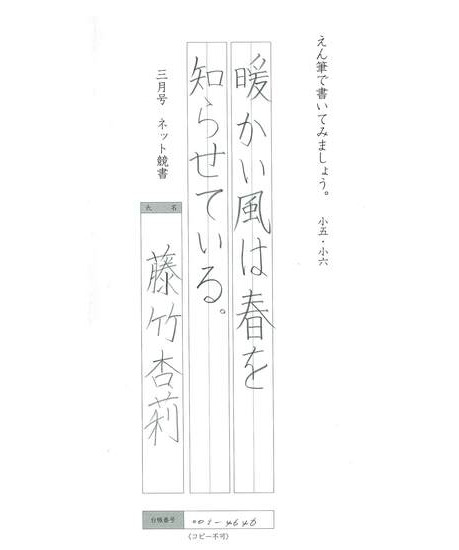 えん筆で書いてみましょう。 小五・小六
暖かい風は春を
知らせている。
三月号 ネット競書
氏名
藤竹杏莉
台帳番号
001-4646
(コピー不可)